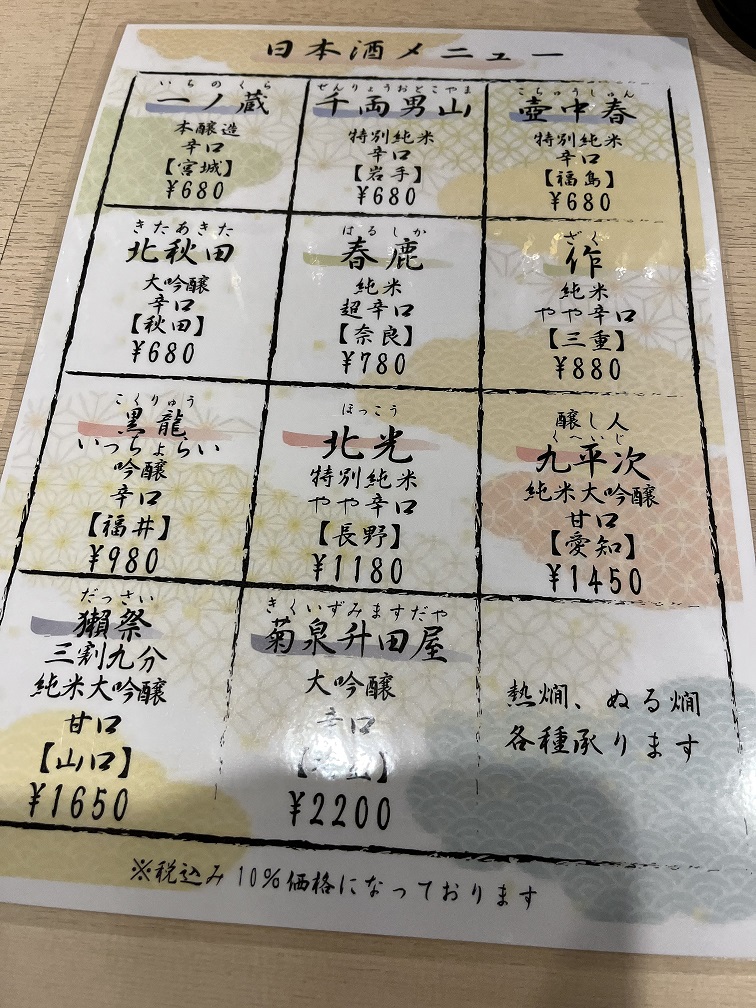 日本酒メニュー
いちのくら
一ノ蔵
本醸造
辛口
【宮城】
¥680
せんりょうおとこやま
千両男山
特別純米
辛口
【岩手】
¥680
こちゅうしゅん
壺中春
特別純米
辛口
【福島】
¥680
きたあきた
北秋田
大吟醸
辛口
【秋田】
¥680
はるしか
春鹿
純米
超辛口
【奈良】
¥780
ざく
作
純米
やや辛口
【三重】
¥880
こくりゅう
黒龍
いっちょらい
吟醸
辛口
【福井】
¥980
ほっこう
北光
特別純米
やや辛口
【長野】
¥1180
醸し人
くへいじ
九平次
純米大吟醸
甘口
【愛知】
¥1450
だっさい
獺祭
三割九分
純米大吟醸
甘口
【山口】
¥1650
きくいずみますだや
菊泉升田屋
大吟醸
辛口
¥2200
熱燗、ぬる燗
各種承ります
※税込み10%価格になっております